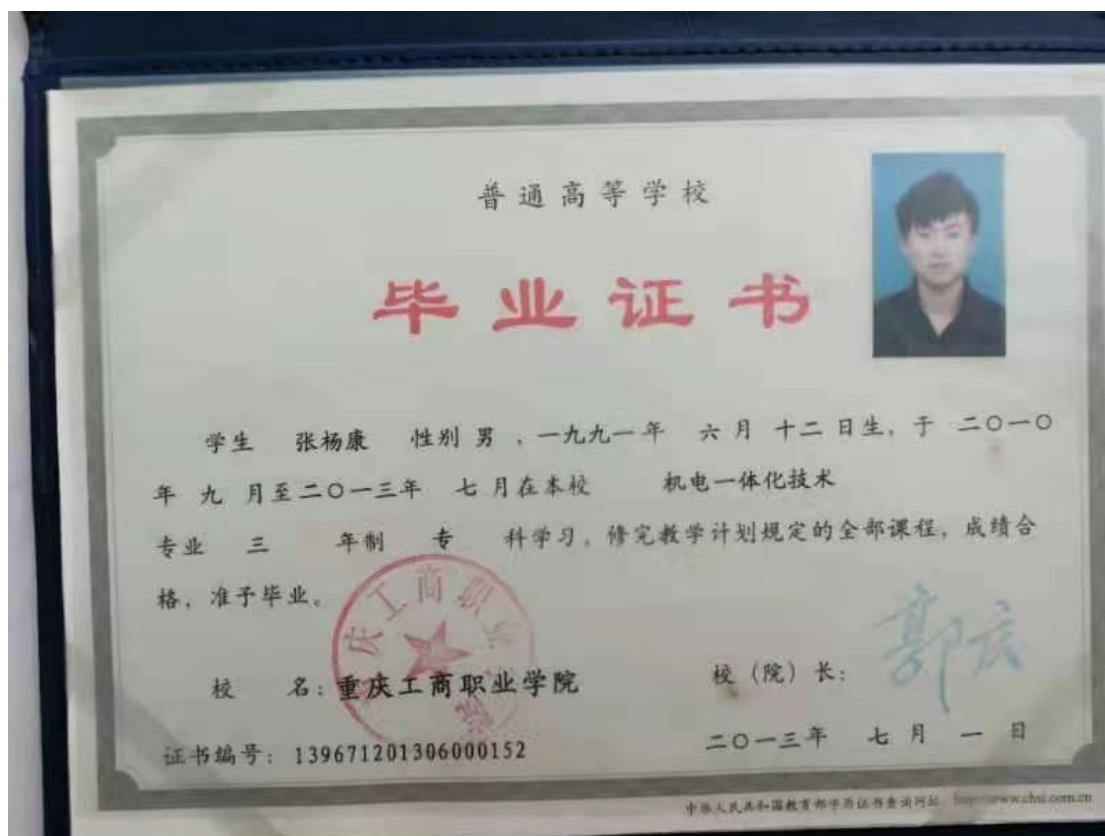 普通高等学校
毕业证书
学生 张杨康 性别 男 ,一九九一年 六月 十二日生,于 二〇一〇
年 九 月至二〇一三年 七月在本校 机电一体化技术
专业 三 年制 专 科学习,修完教学计划规定的全部课程,成绩合
格,准予毕业。
校 名:重庆工商职业学院
校(院)长:
证书编号:139671201306000152
二〇一三年 七月 一日
中华人民共和国教育部学历证书查询网址:http://www.chsi.com.cn